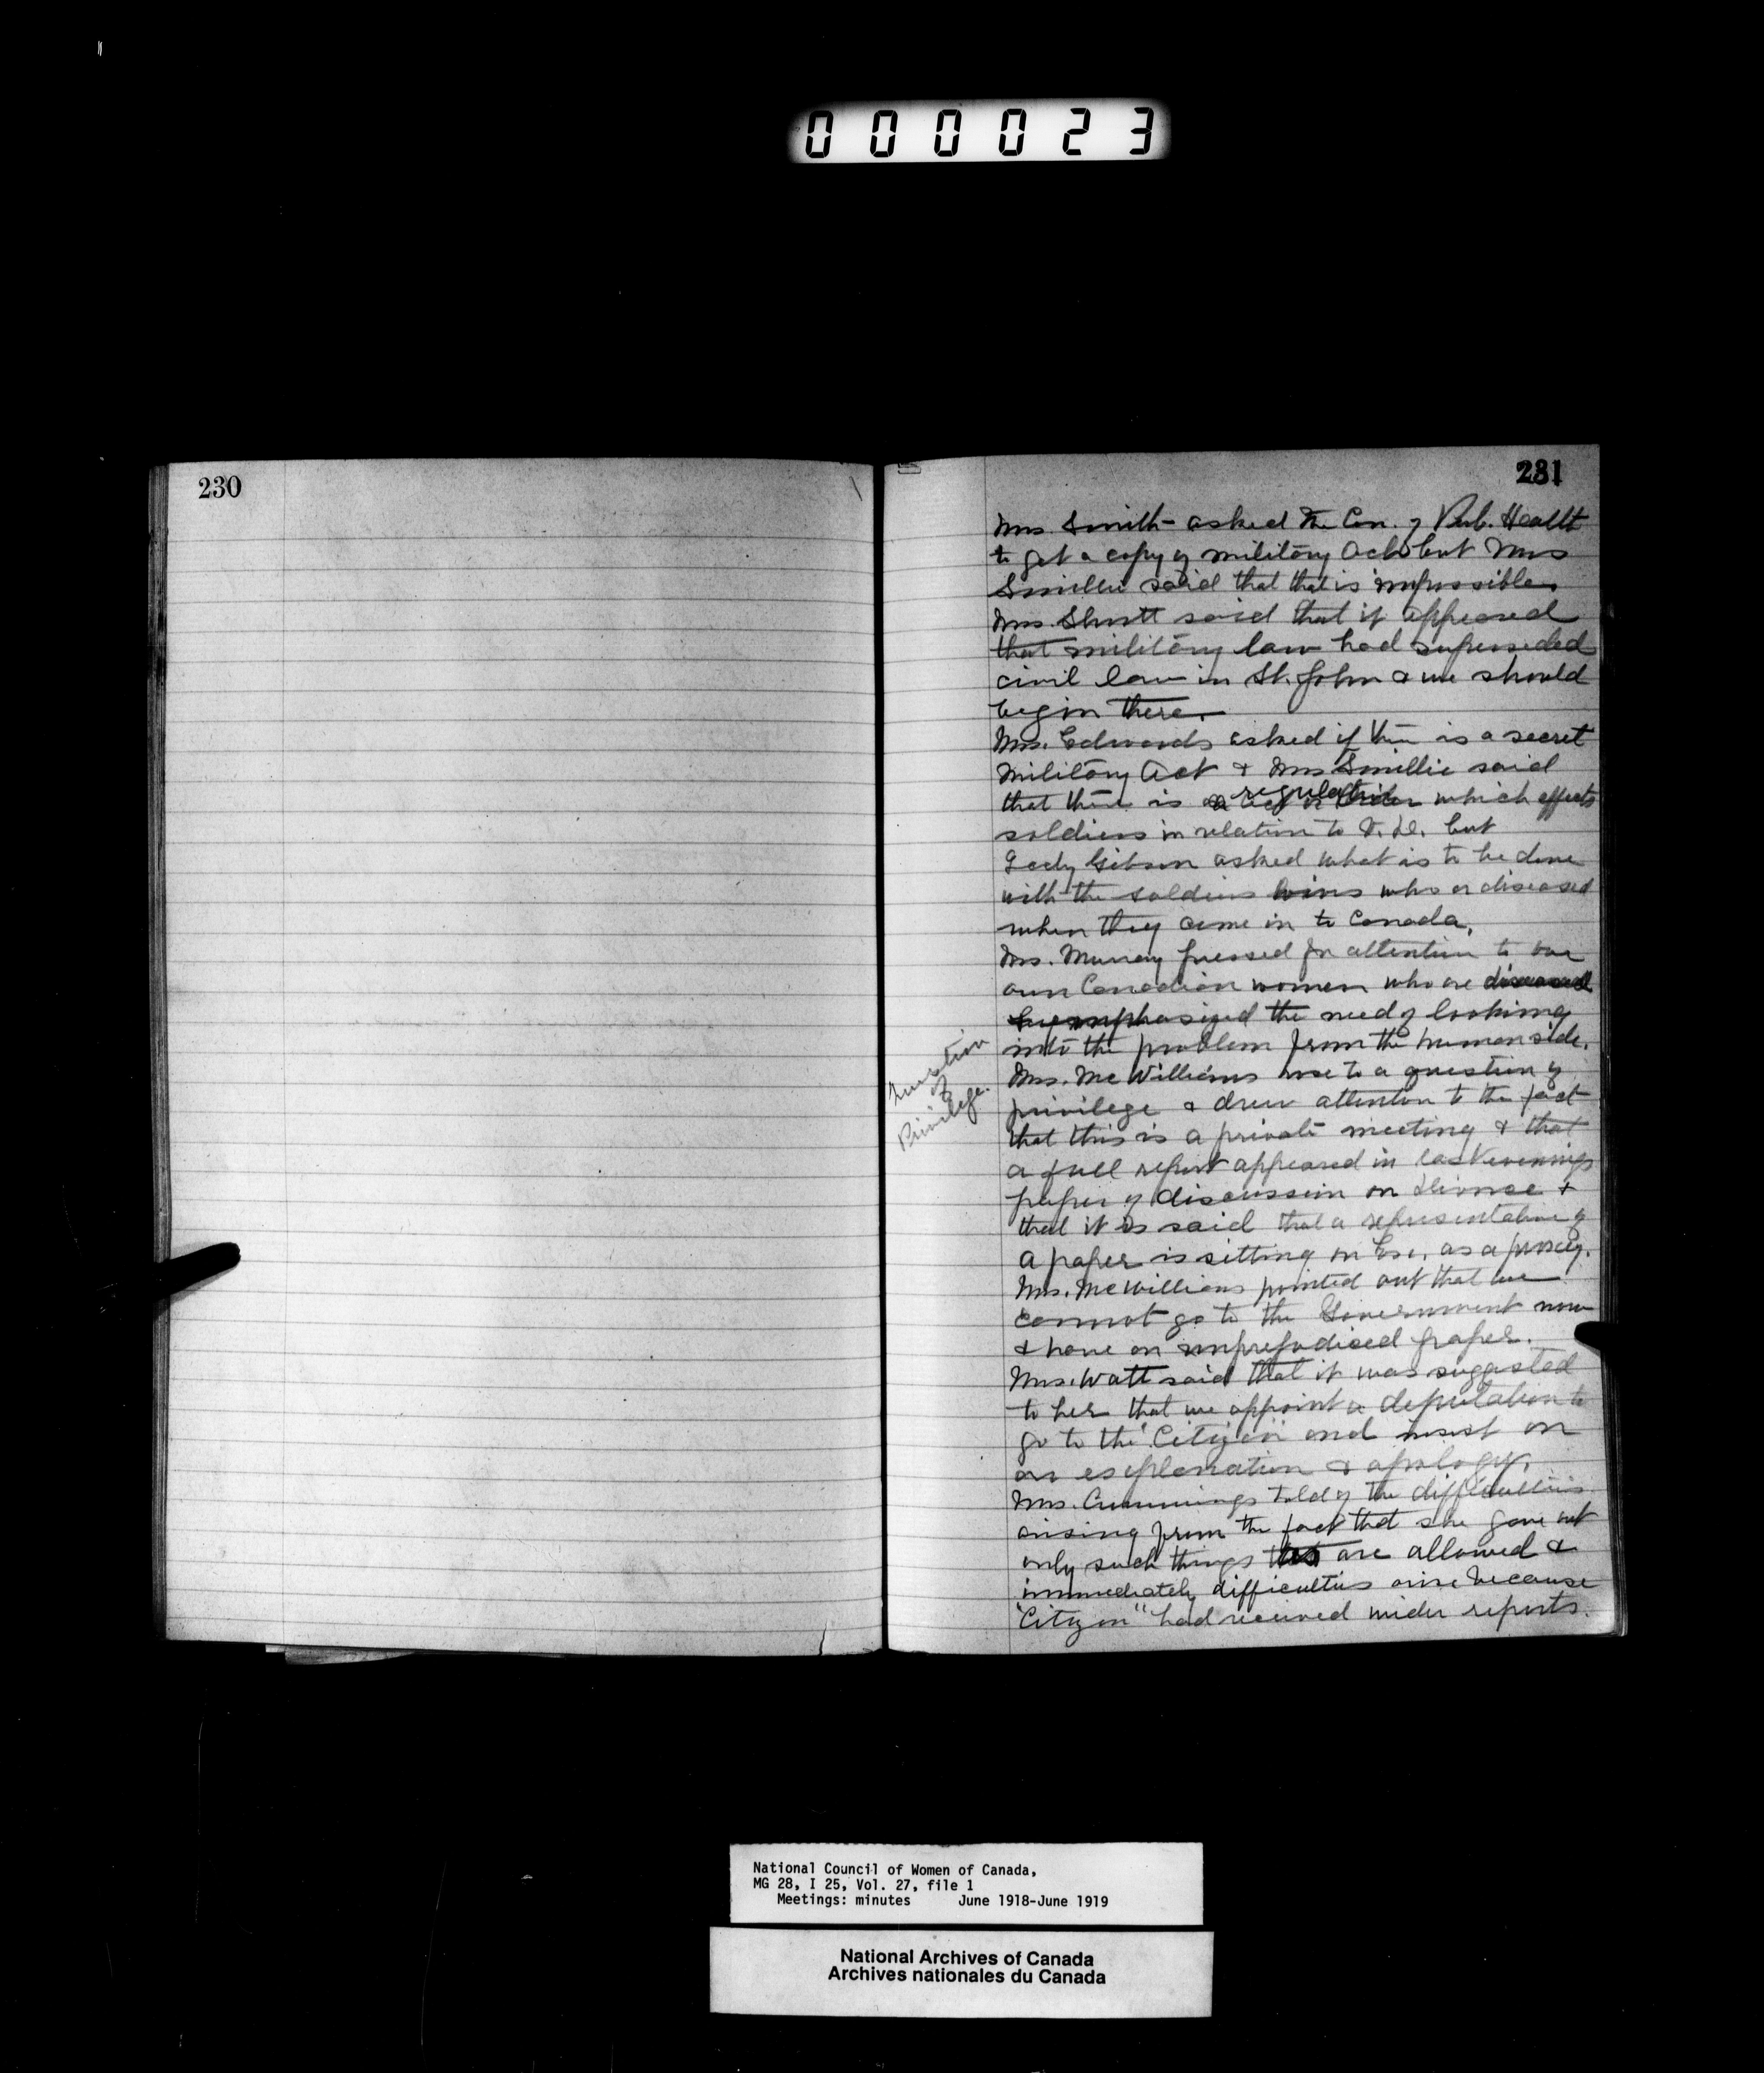 000023
230
231
Mrs. Smith asked the Con. of Pub. Health
to get a copy of military Act but Mrs
Smillie said that that is impossible.
Mrs. Shortt said that it appeared
that military law had superseded
civil law in St. John & we should
begin there.
Mrs. Edwards asked if there is a secret
Military Act & Mrs Smillie said
that there is a regulation which effects
soldiers in relation to V. D. but
Lady Gibson asked what is to be done
with the soldiers wives who are diseased
when they come in to Canada.
Mrs. Murray pressed for attention to our
own Canadian women who are diseased
emphasized the need of looking
into the problem from the human side.
Question
of
Privilege.
Mrs. McWilliams rose to a question of
privilege & drew attention to the fact
that this is a private meeting & that
a full report appeared in last evenings
paper of discussion on divorce &
that it is said that a representative of
a paper is sitting on Exe. as a proxy.
Mrs. McWilliams pointed out that we
cannot go to the Government now
& have an unprejudiced paper.
Mrs. Watt said that it was suggested
to her that we appoint a deputation to
go to the "Citizen" and insist on
an explanation & apology.
Mrs. Cummings told of the difficulties
arising from the fact that she gave out
only such things as are allowed &
immediately difficulties arise because
"Citizen" had received wider reports.
National Council of Women of Canada,
MG 28, I 25, Vol. 27, file 1
Meetings: minutes June 1918-June 1919
National Archives of Canada
Archives nationales du Canada